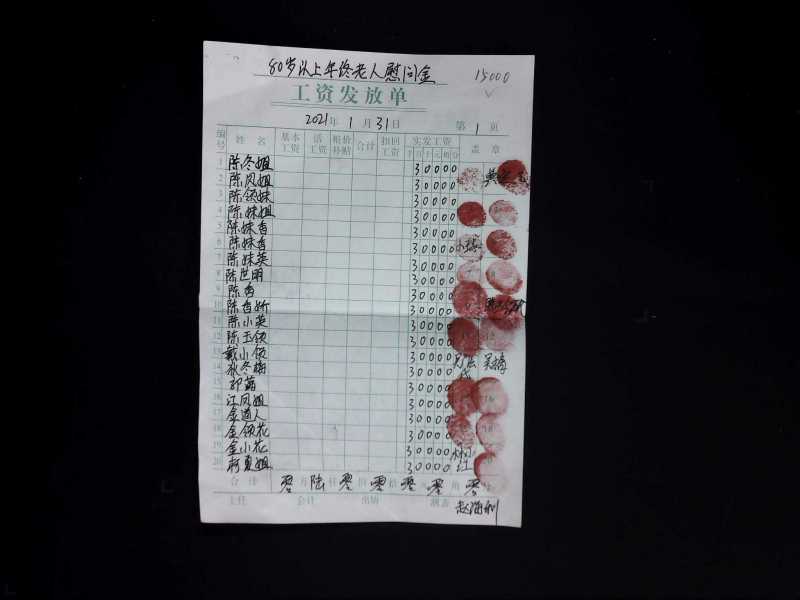 80岁以上年终老人慰问金
15000
工资发放单
2021年1月31日 第1页
编号 姓名 基本工资 活工资 粮价补贴 合计 扣回工资 实发工资 盖章
千百十元角分
1 陈冬姐 30000
2 陈凤姐 30000
3 陈领妹 30000
4 陈妹姐 30000
5 陈妹香 30000
6 陈妹香 30000
7 陈妹英 30000
8 陈世明 30000
9 陈香 30000
10 陈香娇 30000
11 陈小英 30000
12 陈玉领 30000
13 戴小领 30000
14 狄冬梅 30000
15 30000
16 江凤姐 30000
17 金道人 30000
18 金领花 30000
19 金小花 30000
20 柯夏姐 30000
合计 零万陆仟零佰零拾零元零角零分
主任 会计 出纳 制表 赵海利